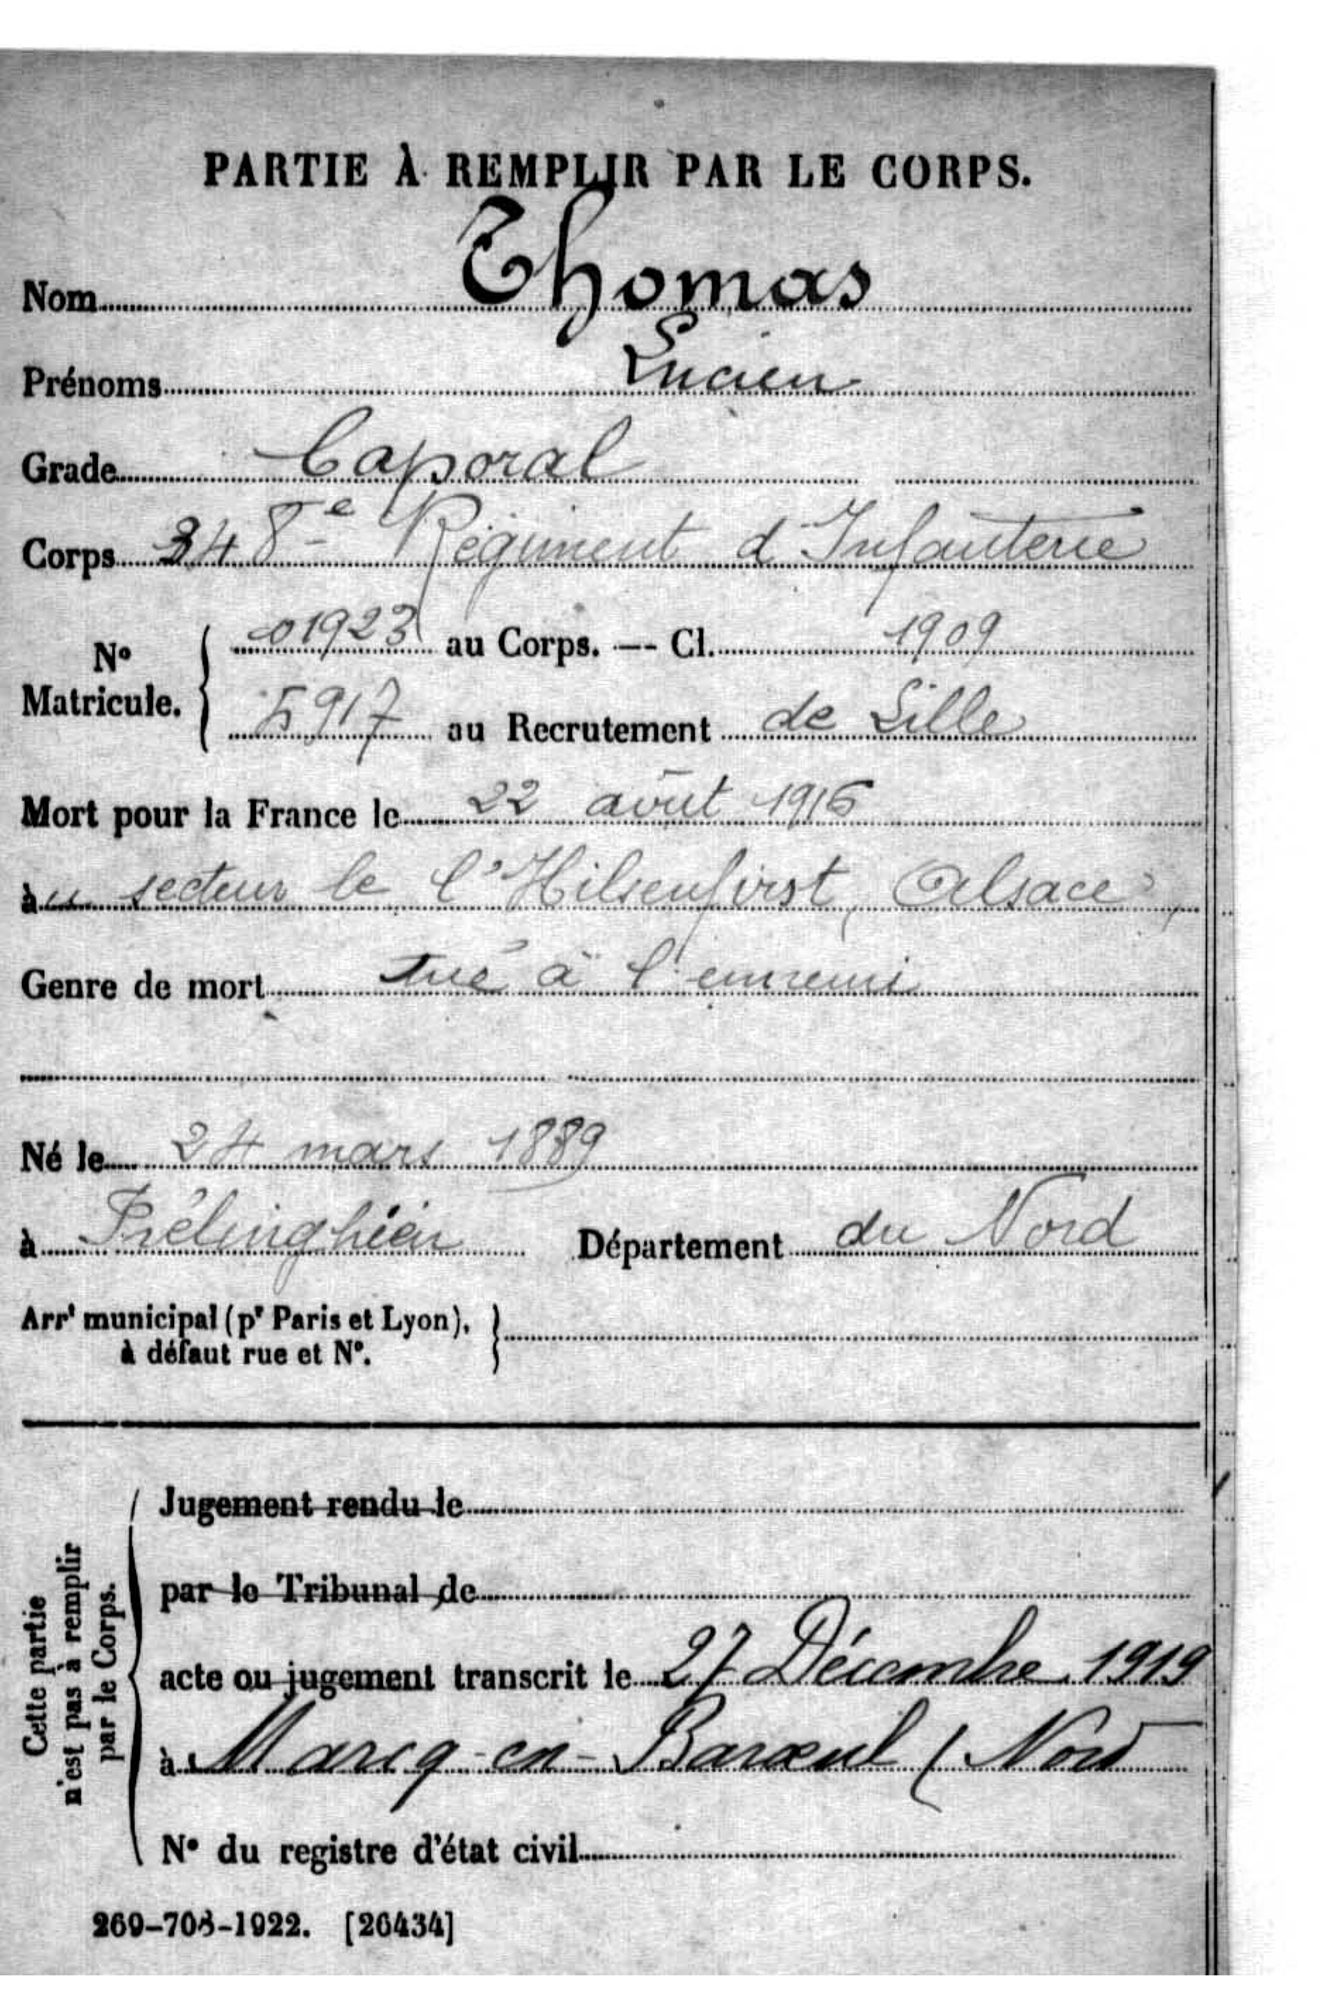 PARTIE À REMPLIR PAR LE CORPS.
Nom Thomas
Prénoms Lucien
Grade Caporal
Corps 348e Régiment d'Infanterie
No Matricule. 01923 au Corps. — Cl. 1909
5917 au Recrutement de Lille
Mort pour la France le 22 août 1916
àu secteur le l'Hilsenfirst, Alsace,
Genre de mort tué à l'ennemi
Né le 24 mars 1889
à Prélinghien Département du Nord
Arrt municipal (pr Paris et Lyon),
à défaut rue et No.
Cette partie
n'est pas à remplir
par le Corps.
Jugement rendu le
par le Tribunal de
acte ou jugement transcrit le 27 Décembre 1919
à Marcq-en-Barœul (Nord
No du registre d'état civil
269-708-1922. [26434]